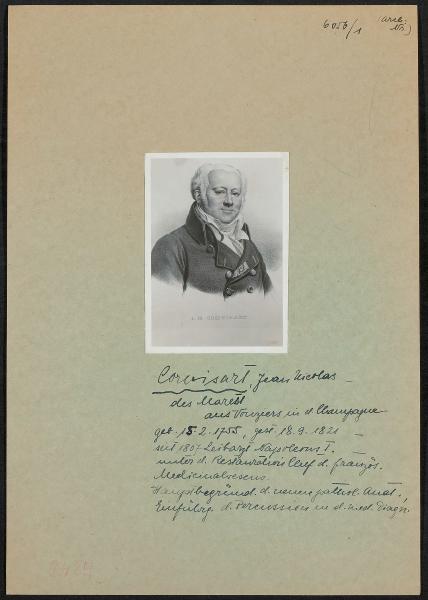 6056/1 (arch. Nr.)
J. N. CORVISART
Corvisart, Jean Nicolas –
des Marest
aus Vouziers in d. Champagne
geb. 15.2.1755, gest. 18.9.1821 –
seit 1807 Leibarzt Napoleons I. –
unter d. Restauration Chef d. französ.
Medicinalwesens.
Hauptbegründ. d. neuen pathol. Anat.,
Einführg. d. Percussion in d. med. Diagn.